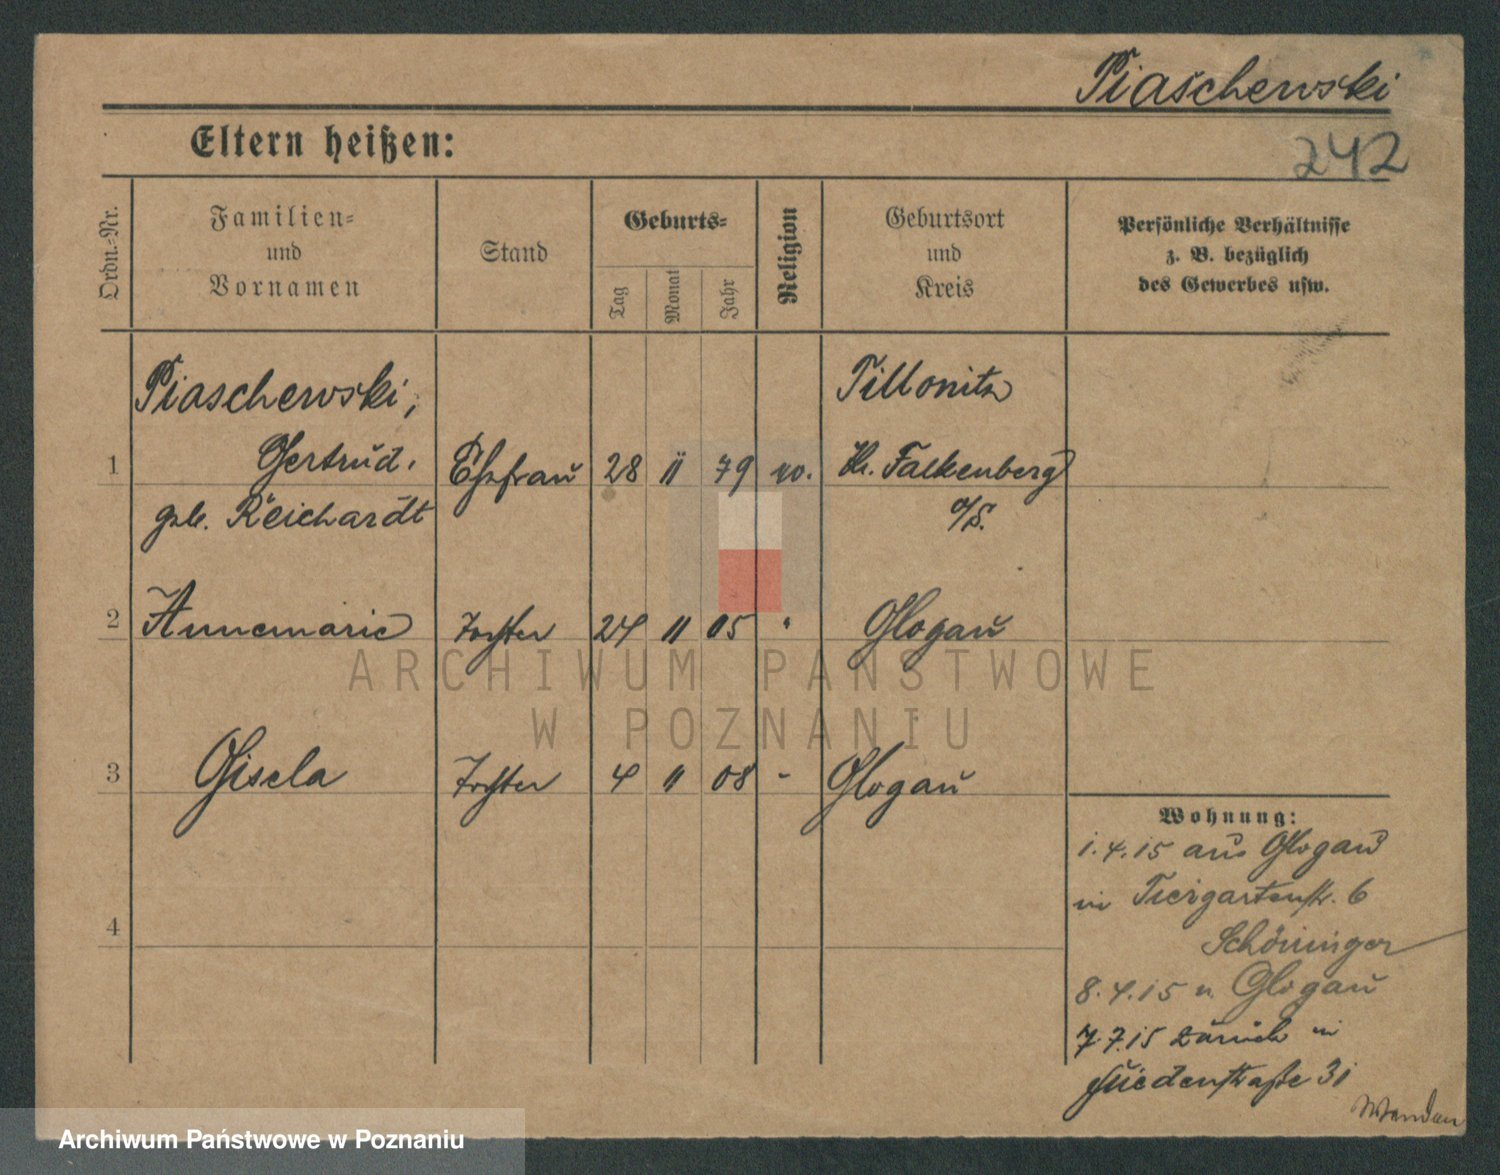 Piaschewski
242
Eltern heißen:
Ordn.-Nr.
Familien-
und
Vornamen
Stand
Geburts-
Tag
Monat
Jahr
Religion
Geburtsort
und
Kreis
Persönliche Verhältnisse
z. B. bezüglich
des Gewerbes usw.
Piaschewski,
Gertrud, Ehefrau 28 II 79
geb. Reichardt
Tillowitz
Kr. Falkenberg
O/S.
1
2 Annemarie Tochter 24 II 05 " Glogau
3 Gisela Tochter 4 II 08 - Glogau
4
Wohnung:
1.4.15 aus Glogau
in Tiergartenstr. 6
Schöninger
8.4.15 n. Glogau
7.7.15 zurück in
31
Wenden
ARCHIWUM PAŃSTWOWE
W POZNANIU
Archiwum Państwowe w Poznaniu